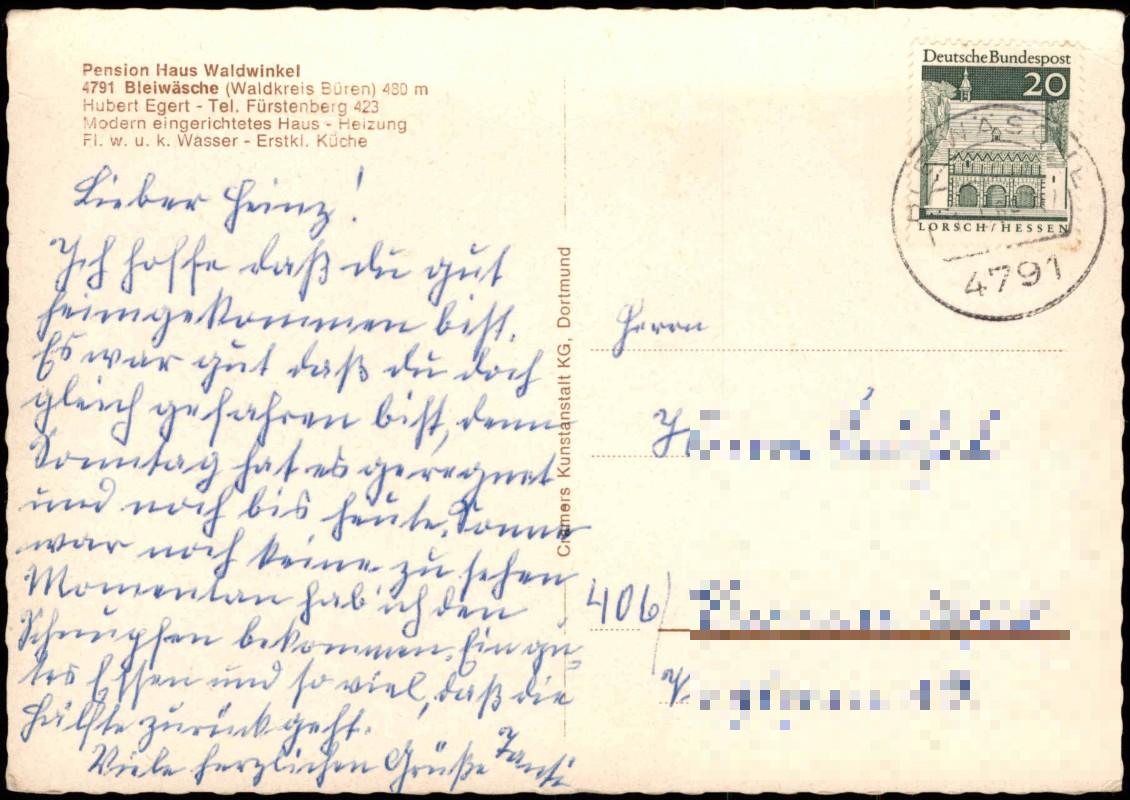 Pension Haus Waldwinkel
4791 Bleiwäsche (Waldkreis Büren) 480 m
Hubert Egert - Tel. Fürstenberg 423
Modern eingerichtetes Haus - Heizung
Fl. w. u. k. Wasser - Erstkl. Küche
Deutsche Bundespost
20
LORSCH/HESSEN
BLEIWÄSCHE
4791
Lieber Heinz!
Ich hoffe daß du gut
heimgekommen bist.
Es war gut daß du doch
gleich gefahren bist, denn
Sonntag hat es geregnet
und noch bis heute. Sonne
war noch keine zu sehen
Momentan hab ich den
Schnupfen bekommen. Ein gu-
tes Essen und so viel, daß die
Hälfte zurück geht.
Viele herzlichen Grüße
Cramers Kunstanstalt KG, Dortmund
Herrn
406